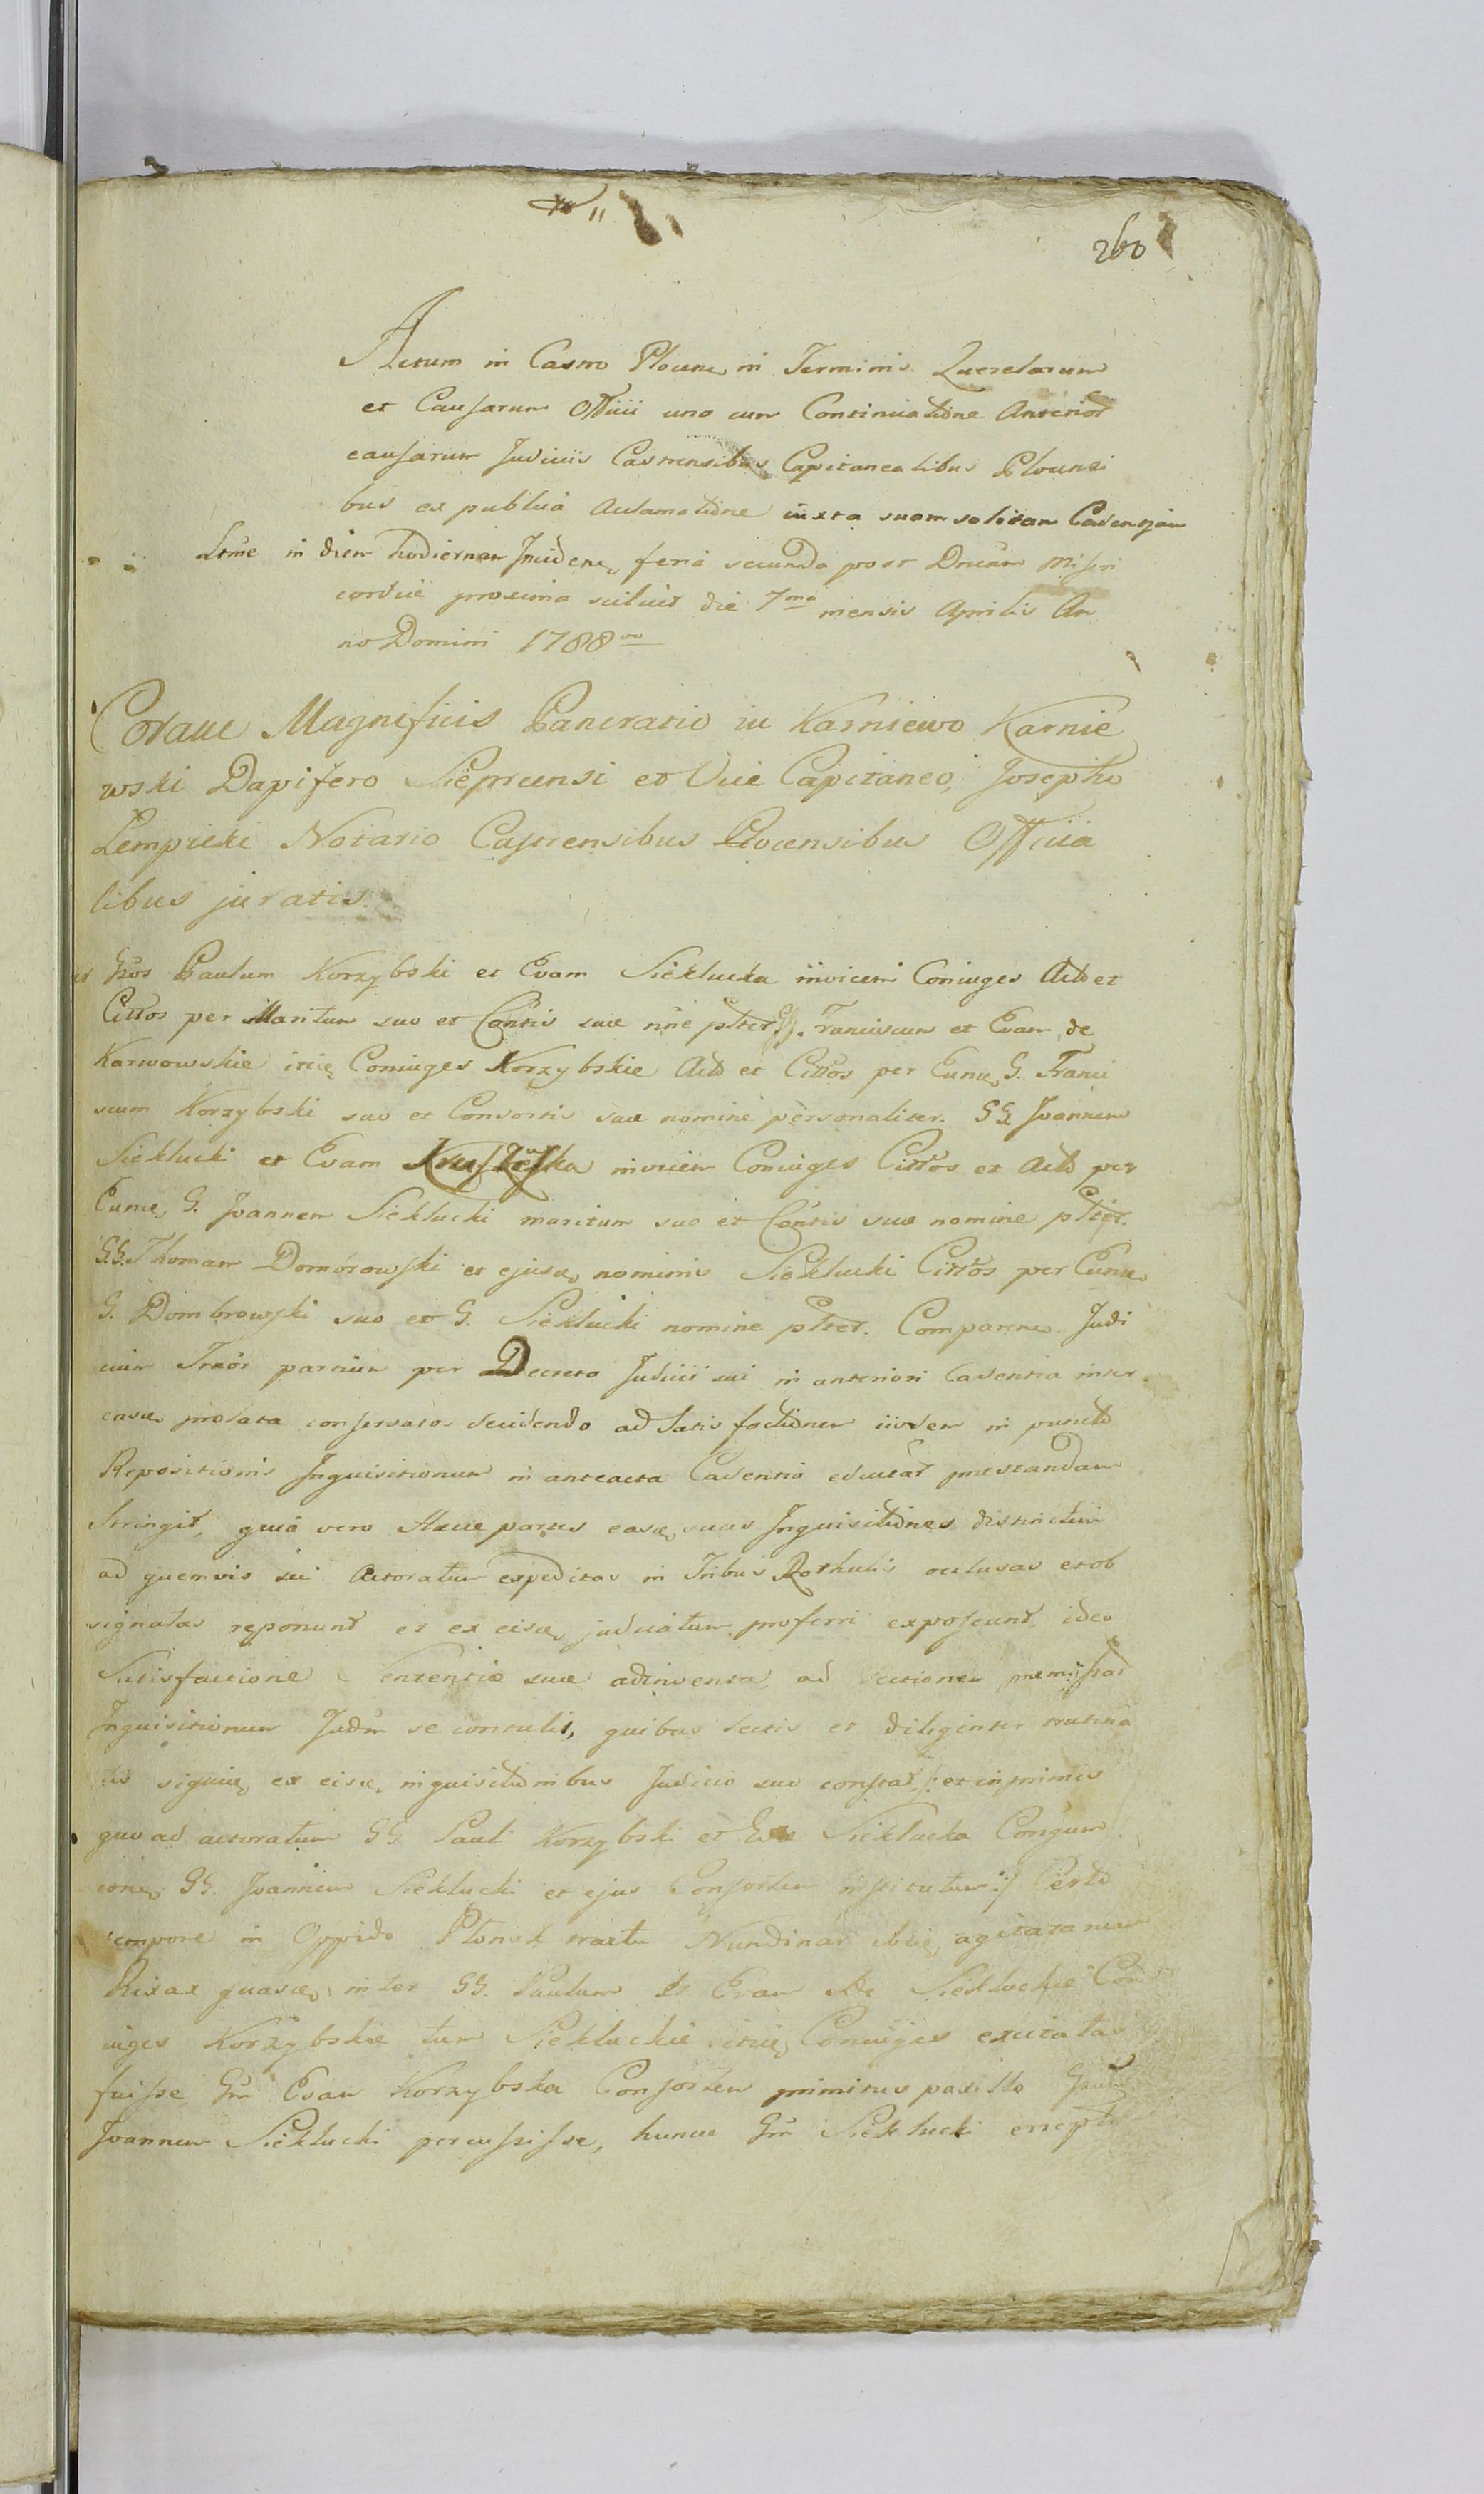 260
Actum in Castro Plocen, in Terminis Querelarum
et Causarum Officii uno cum Continuatione Anterior
causarum Judiciis Castrensibus Capitanealibus Plocensi
bus ex publica Aclamatione iuxta suam solitam Cadentiam
in diem hodiernam Inciden, feria secunda post Dncam Miseri
cordiæ proxima scilicet die 7ma mensis Aprilis An
no Domini 1788vo
Coram Magnificis Pancratio in Karniewo Karnie
wski Dapifero Sieprcensi et Vice Capitaneo, Josepho
Lempicki Notario Castrensibus Plocensibus Officia
libus juratis.
Gsos Paulum Korzybski et Evam Sieklucka invicem Coniuges Act et
Cittos per Maritum suo et Contis suæ nne plter. GG. Franciscum et Evam de
Karwowskie itić Coniuges Korzybskie Act et Cittos per Eund, G. Franci
scum Korzybski suo et Consortis suæ nomine personaliter. GG Joannem
Sieklucki et Evam invicem Coniuges Cittos et Act per
Eund, G. Joannem Sieklucki maritum suo et Contis suæ nomine plter.
GG. Thomam Domórowski et ejusd, nominis Sieklucki Cittos per Eund,
G. Dombrowski suo et G. Sieklucki nomine plter. Comparen. Judi
cium partium per Decreta Judicii sui in anteriori Cadentia inter
easd, prolata conservatos decidendo ad Satisfactionem iisdem in puncto
Repositionis Inquisitionum in anteacta Cadentia eductar præstandam
Stringit, quia vero Hæce partes easd, suas Inquisitiones distinctim
ad quemvis sui Actoratum expeditas in Tribus Rothulis oclusas et ob
signatas reponunt et ex eisd, judicatum proferri exposcunt, ideo
Satisfactione Sententiæ suæ adinventa, ad lectionem præmissar
Inquisitionum Judm se contulit, quibus lectis et diligenter trutina
tis siquid, ex eisd, inquisitionibus Judicio suo constat, /: et inprimis
quo ad actoratum GG. Pauli Korzybski et Evæ Sieklucka Conjgum
cone, GG. Joannem Sieklucki et ejus Consortem institutum :/ Certo
tempore in Oppido Plonsk tractu Nundinar ibid, agitatarum
Rixas quasd, inter GG. Paulum et Evam de Siekluckie Con
iuges Korzybskie tum Siekluckie itić, Coniuges excitatas
fuisse Gm Evam Korzybska Consortem primitus paxillo
Joannem Sieklucki percussisse, hunce Gm Sieklucki erepto